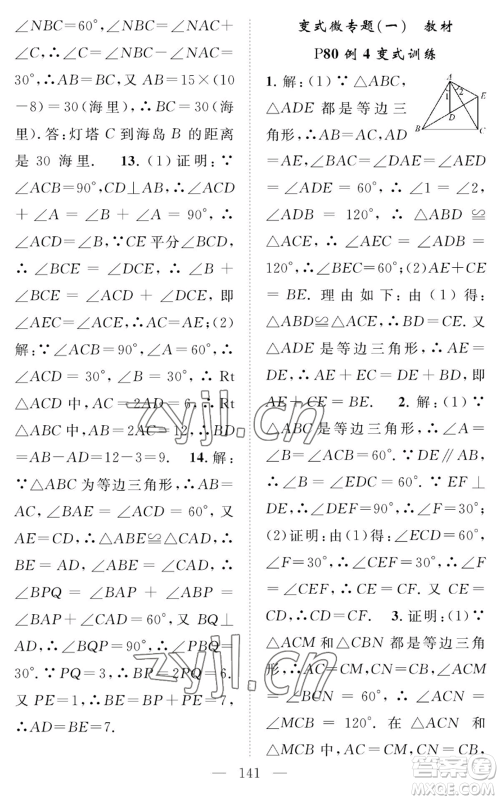 ∠NBC=60°,∴∠ACB=
∠NBC-∠NAC=
30°,∴AB=BC,又∵∠NAC=
30°,∴AB=BC,又AB=15×(10
-8)=30(海里),∴BC=30(海
里).答:灯塔C到海岛B的距离
是30海里. 13.(1)证明:∵
∠ACB=90°,CD⊥AB,∴∠ACD
+∠A=90°,∠B+∠A=90°,∴
∠ACD=∠B,∵CE平分∠BCD,
∴∠BCE=∠DCE,∴∠B+
∠BCE=∠ACD+∠DCE,即
∠AEC=∠ACE,∴AC=AE;(2)
解:∵∠ACB=90°,∠A=60°,∴
∠ACD=30°,∠B=30°,∴Rt
△ACD中,AC=2AD=6,∴Rt
△ABC中,AB=2AC=12,∴BD=
AB-AD=12-3=9. 14.解:
∵△ABC为等边三角形,∴AB=
CA,∠BAE=∠ACD=60°,又∵
AE=CD,∴△ABE≌△CAD,∴
BE=AD,∠ABE=∠CAD,∴
∠BPQ=∠BAP+∠ABP=
∠BAP+∠CAD=60°,∵BQ⊥
AD,∴∠BQP=90°,∴∠PBQ=
30°.∵PQ=3,∴BP=2PQ=6.
又∵PE=1,∴BE=BP+PE=7,
∴AD=BE=7.
变式微专题(一) 教材
P80例4变式训练
1.解:(1)∵△ABC,
△ADE都是等边三
角形,∴AB=AC,AD
=AE,∠BAC=∠DAE=∠AED
=∠ADE=60°,∴∠1=∠2,
∠ADB=120°,∴△ABD≌
△ACE,∴∠AEC=∠ADB=
120°,∴∠BEC=60°;(2)AE+CE
=BE.理由如下:由(1)得:
△ABD≌△ACE,∴BD=CE.又
∵△ADE是等边三角形,∴AE=
DE,∴AE+CE=DE+BD=BE,即
AE+CE=BE. 2.解:(1)∵
△ABC是等边三角形,∴∠B=
60°.∵DE∥AB,∴
∠EDF=∠B=60°.∵DE⊥EF,
∴∠DEF=90°,∴∠F=30°;
(2)证明:由(1)得:∠ECD=60°,
∠F=30°,∴∠CEF=∠ECD-
∠F=30°,∴∠CEF=∠F,∴CE=
CF,∴CD=CF. 3.证明:(1)∵
△ACM和△CBN都是等边三角
形,∴AC=CM,CN=CB,∠ACM
=∠BCN=60°,∴∠ACN=
∠MCB=120°.在△ACN和
△MCB中,AC=MC,∠ACN=
∠MCB,CN=CB,∴△ACN≌
141
A
1
2
E
D
B
C
zyjl.cn
zyjl.cn